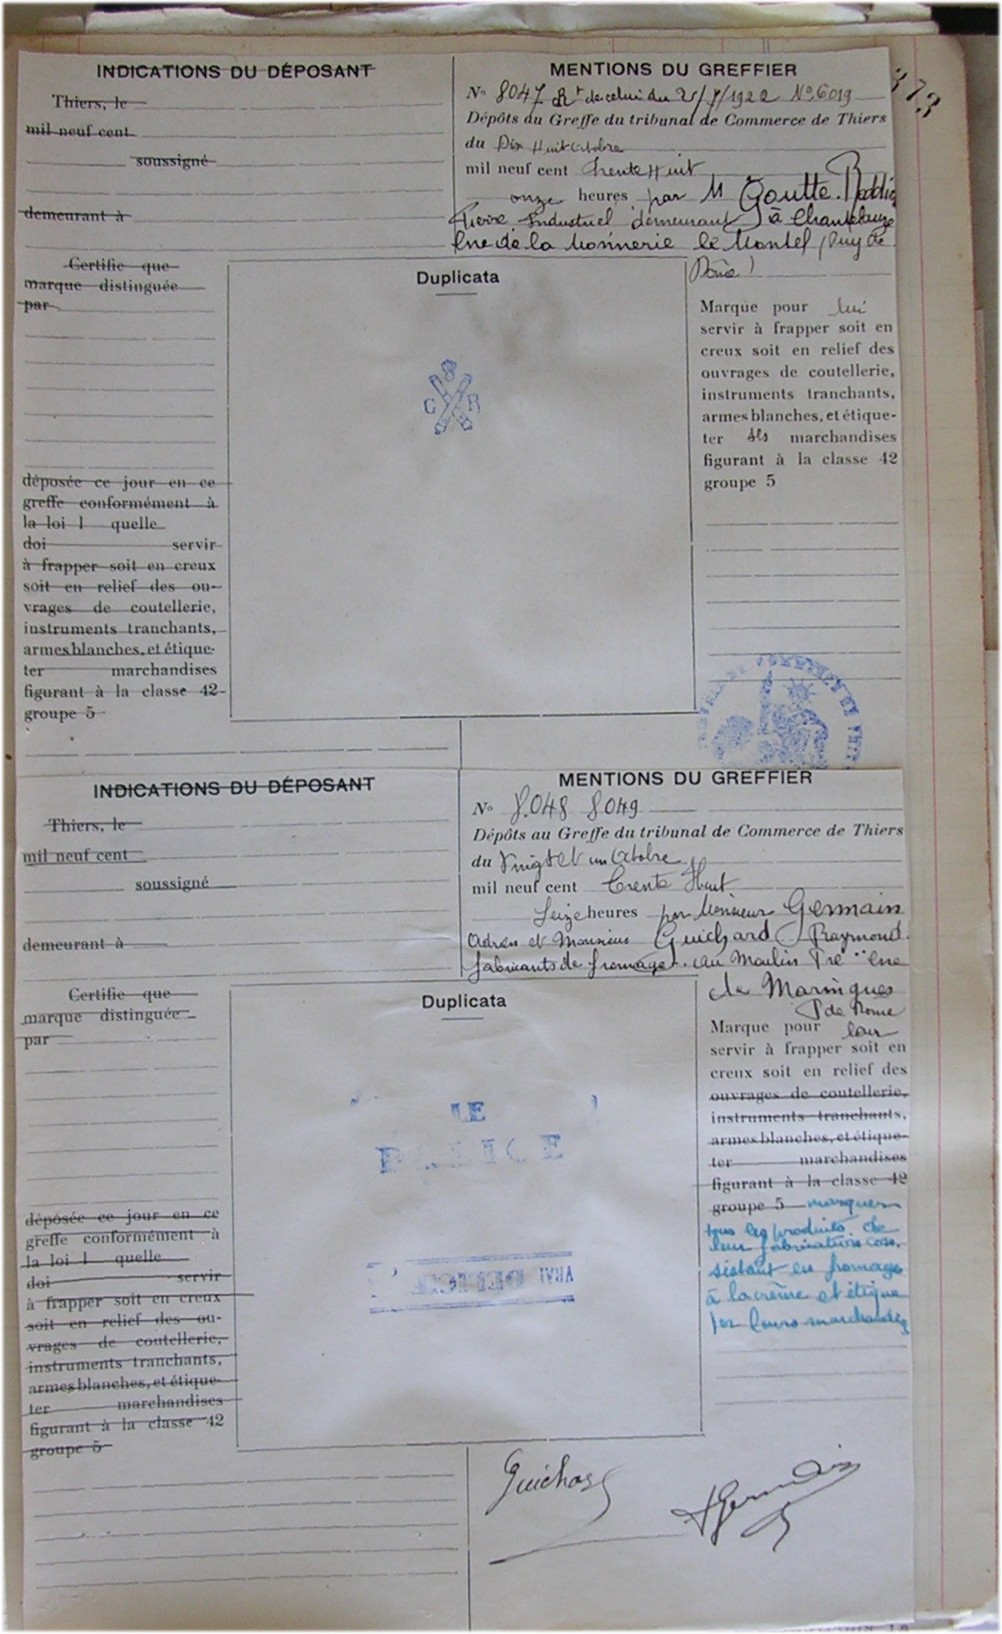 373
INDICATIONS DU DÉPOSANT
Thiers, le
mil neuf cent
soussigné
demeurant à
Certifie que
marque distinguée
par
déposée ce jour en ce
greffe conformément à
la loi l quelle
doi servir
à frapper soit en creux
soit en relief des ou-
vrages de coutellerie,
instruments tranchants,
armes blanches, et étique-
ter marchandises
figurant à la classe 42
groupe 5
MENTIONS DU GREFFIER
No 8047 Rt de celui du 2/7/1922 No 6019
Dépôts au Greffe du tribunal de Commerce de Thiers
du Dix Huit Octobre
mil neuf cent Trente Huit
onze heures par M Goutte-
Pierre Industriel demeurant à
Cne de la Monnerie le Montel (Puy de
Dôme)
Duplicata
G R
Marque pour lui
servir à frapper soit en
creux soit en relief des
ouvrages de coutellerie,
instruments tranchants,
armes blanches, et étique-
ter ses marchandises
figurant à la classe 42
groupe 5
INDICATIONS DU DÉPOSANT
Thiers, le
mil neuf cent
soussigné
demeurant à
Certifie que
marque distinguée
par
déposée ce jour en ce
greffe conformément à
la loi l quelle
doi servir
à frapper soit en creux
soit en relief des ou-
vrages de coutellerie,
instruments tranchants,
armes blanches, et étique-
ter marchandises
figurant à la classe 42
groupe 5
MENTIONS DU GREFFIER
No 8.048 8049
Dépôts au Greffe du tribunal de Commerce de Thiers
du Vingt et un Octobre
mil neuf cent Trente Huit
Seize heures par Monsieur Germain
Adrien et Monsieur Guichard Raymond
fabricants de fromage au Moulin Cne
de Maringues
P de Dôme
Duplicata
LE
DELICE
VRAI DELICE
Marque pour leur
servir à frapper soit en
creux soit en relief des
ouvrages de coutellerie,
instruments tranchants,
armes blanches, et étique-
ter marchandises
figurant à la classe 42
groupe 5 marquer
tous les produits de
leur fabrication con-
sistant en fromages
à la crème et étique
ter leurs marchandises
Guichard
AGermain